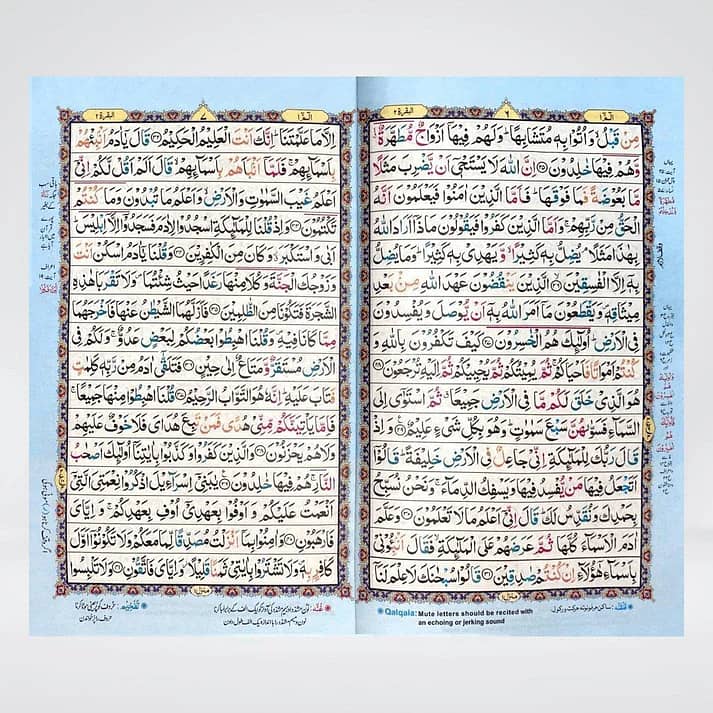 الٓمّٓ ١
٦
البقرة ٢
مِنْ قَبْلُ ۙ وَاُتُوْا بِهٖ مُتَشَابِهًا ؕ وَلَهُمْ فِيْهَاۤ اَزْوَاجٌ مُّطَهَّرَةٌ ۙ
وَّهُمْ فِيْهَا خٰلِدُوْنَ ﴿۲۵﴾ اِنَّ اللهَ لَا يَسْتَحْيٖۤ اَنْ يَّضْرِبَ مَثَلًا
مَّا بَعُوْضَةً فَمَا فَوْقَهَا ؕ فَاَمَّا الَّذِيْنَ اٰمَنُوْا فَيَعْلَمُوْنَ اَنَّهُ
الْحَقُّ مِنْ رَّبِّهِمْ ۚ وَاَمَّا الَّذِيْنَ كَفَرُوْا فَيَقُوْلُوْنَ مَاذَاۤ اَرَادَ اللهُ
بِهٰذَا مَثَلًا ۘ يُضِلُّ بِهٖ كَثِيْرًا ۙ وَّيَهْدِيْ بِهٖ كَثِيْرًا ؕ وَمَا يُضِلُّ
بِهٖۤ اِلَّا الْفٰسِقِيْنَ ﴿۲۶﴾ الَّذِيْنَ يَنْقُضُوْنَ عَهْدَ اللهِ مِنْۢ بَعْدِ
مِيْثَاقِهٖ ۪ وَيَقْطَعُوْنَ مَاۤ اَمَرَ اللهُ بِهٖۤ اَنْ يُّوْصَلَ وَيُفْسِدُوْنَ
فِى الْاَرْضِ ؕ اُولٰٓئِكَ هُمُ الْخٰسِرُوْنَ ﴿۲۷﴾ كَيْفَ تَكْفُرُوْنَ بِاللهِ وَ
كُنْتُمْ اَمْوَاتًا فَاَحْيَاكُمْ ۚ ثُمَّ يُمِيْتُكُمْ ثُمَّ يُحْيِيْكُمْ ثُمَّ اِلَيْهِ تُرْجَعُوْنَ ﴿۲۸﴾
هُوَ الَّذِيْ خَلَقَ لَكُمْ مَّا فِى الْاَرْضِ جَمِيْعًا ۗ ثُمَّ اسْتَوٰۤى اِلَى
السَّمَآءِ فَسَوّٰىهُنَّ سَبْعَ سَمٰوٰتٍ ؕ وَهُوَ بِكُلِّ شَيْءٍ عَلِيْمٌ ﴿۲۹﴾ وَاِذْ
قَالَ رَبُّكَ لِلْمَلٰٓئِكَةِ اِنِّيْ جَاعِلٌ فِى الْاَرْضِ خَلِيْفَةً ؕ قَالُوْۤا
اَتَجْعَلُ فِيْهَا مَنْ يُّفْسِدُ فِيْهَا وَيَسْفِكُ الدِّمَآءَ ۚ وَنَحْنُ نُسَبِّحُ
بِحَمْدِكَ وَنُقَدِّسُ لَكَ ؕ قَالَ اِنِّيْۤ اَعْلَمُ مَا لَا تَعْلَمُوْنَ ﴿۳۰﴾ وَعَلَّمَ
اٰدَمَ الْاَسْمَآءَ كُلَّهَا ثُمَّ عَرَضَهُمْ عَلَى الْمَلٰٓئِكَةِ ۙ فَقَالَ اَنْۢبِـُٔوْنِيْ
بِاَسْمَآءِ هٰۤؤُلَآءِ اِنْ كُنْتُمْ صٰدِقِيْنَ ﴿۳۱﴾ قَالُوْا سُبْحٰنَكَ لَا عِلْمَ لَنَاۤ
منزل ١
Qalqala: Mute letters should be recited with
an echoing or jerking sound
الٓمّٓ ١
٧
البقرة ٢
اِلَّا مَا عَلَّمْتَنَا ؕ اِنَّكَ اَنْتَ الْعَلِيْمُ الْحَكِيْمُ ﴿۳۲﴾ قَالَ يٰۤاٰدَمُ اَنْۢبِئْهُمْ
بِاَسْمَآئِهِمْ ۚ فَلَمَّاۤ اَنْۢبَاَهُمْ بِاَسْمَآئِهِمْ ۙ قَالَ اَلَمْ اَقُلْ لَّكُمْ اِنِّيْۤ
اَعْلَمُ غَيْبَ السَّمٰوٰتِ وَالْاَرْضِ ۙ وَاَعْلَمُ مَا تُبْدُوْنَ وَمَا كُنْتُمْ
تَكْتُمُوْنَ ﴿۳۳﴾ وَاِذْ قُلْنَا لِلْمَلٰٓئِكَةِ اسْجُدُوْا لِاٰدَمَ فَسَجَدُوْۤا اِلَّاۤ اِبْلِيْسَ ؕ
اَبٰى وَاسْتَكْبَرَ ۫ وَكَانَ مِنَ الْكٰفِرِيْنَ ﴿۳۴﴾ وَقُلْنَا يٰۤاٰدَمُ اسْكُنْ اَنْتَ
وَزَوْجُكَ الْجَنَّةَ وَكُلَا مِنْهَا رَغَدًا حَيْثُ شِئْتُمَا ۪ وَلَا تَقْرَبَا هٰذِهِ
الشَّجَرَةَ فَتَكُوْنَا مِنَ الظّٰلِمِيْنَ ﴿۳۵﴾ فَاَزَلَّهُمَا الشَّيْطٰنُ عَنْهَا فَاَخْرَجَهُمَا
مِمَّا كَانَا فِيْهِ ۪ وَقُلْنَا اهْبِطُوْا بَعْضُكُمْ لِبَعْضٍ عَدُوٌّ ۚ وَلَكُمْ فِى
الْاَرْضِ مُسْتَقَرٌّ وَّمَتَاعٌ اِلٰى حِيْنٍ ﴿۳۶﴾ فَتَلَقّٰۤى اٰدَمُ مِنْ رَّبِّهٖ كَلِمٰتٍ
فَتَابَ عَلَيْهِ ؕ اِنَّهٗ هُوَ التَّوَّابُ الرَّحِيْمُ ﴿۳۷﴾ قُلْنَا اهْبِطُوْا مِنْهَا جَمِيْعًا ۚ
فَاِمَّا يَاْتِيَنَّكُمْ مِّنِّيْ هُدًى فَمَنْ تَبِعَ هُدَايَ فَلَا خَوْفٌ عَلَيْهِمْ
وَلَا هُمْ يَحْزَنُوْنَ ﴿۳۸﴾ وَالَّذِيْنَ كَفَرُوْا وَكَذَّبُوْا بِاٰيٰتِنَاۤ اُولٰٓئِكَ اَصْحٰبُ
النَّارِ ۚ هُمْ فِيْهَا خٰلِدُوْنَ ﴿۳۹﴾ يٰبَنِيْۤ اِسْرَآءِيْلَ اذْكُرُوْا نِعْمَتِيَ الَّتِيْۤ
اَنْعَمْتُ عَلَيْكُمْ وَاَوْفُوْا بِعَهْدِيْۤ اُوْفِ بِعَهْدِكُمْ ۚ وَاِيَّايَ
فَارْهَبُوْنِ ﴿۴۰﴾ وَاٰمِنُوْا بِمَاۤ اَنْزَلْتُ مُصَدِّقًا لِّمَا مَعَكُمْ وَلَا تَكُوْنُوْۤا اَوَّلَ
كَافِرٍۭ بِهٖ ۪ وَلَا تَشْتَرُوْا بِاٰيٰتِيْ ثَمَنًا قَلِيْلًا ۫ وَّاِيَّايَ فَاتَّقُوْنِ ﴿۴۱﴾ وَلَا تَلْبِسُوا
منزل ١